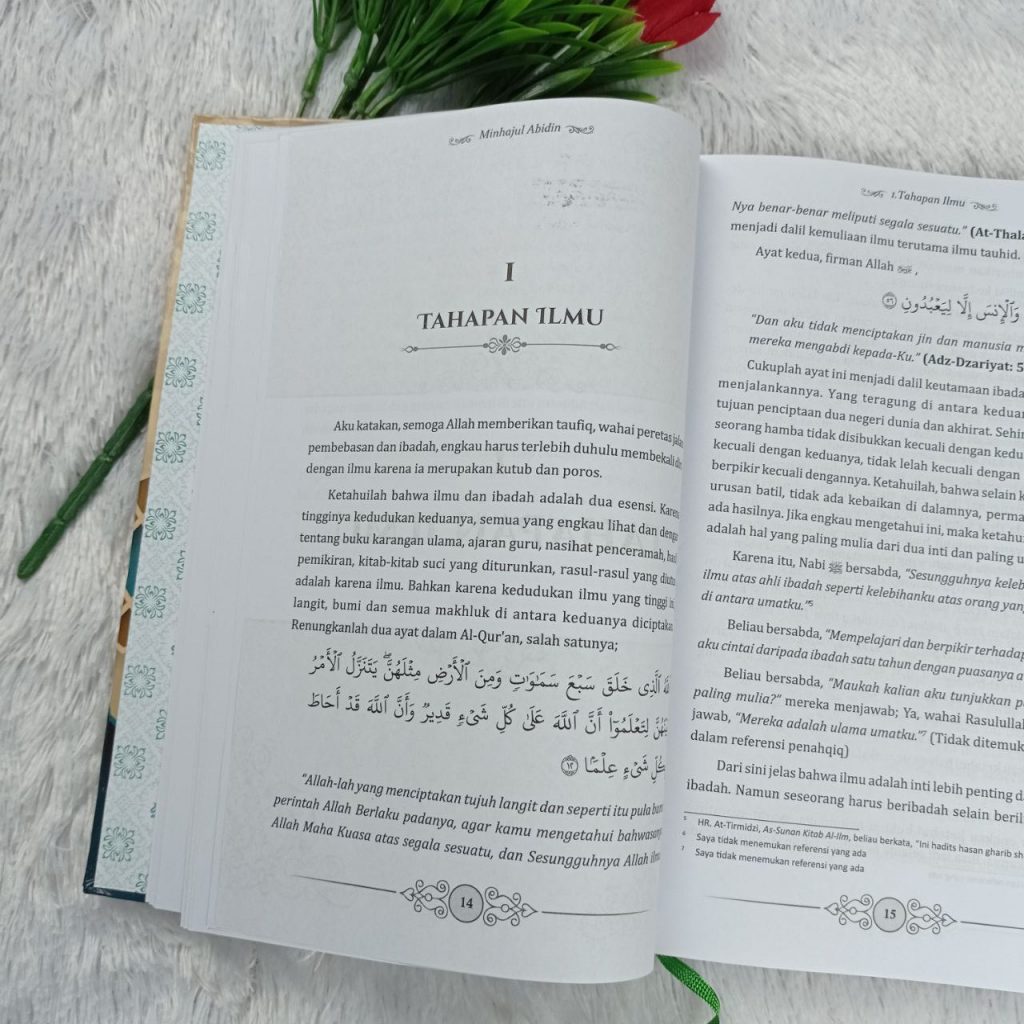 Minhajul Abidin
I
TAHAPAN ILMU
Aku katakan, semoga Allah memberikan taufiq, wahai peretas jalan
pembebasan dan ibadah, engkau harus terlebih duhulu membekali
dengan ilmu karena ia merupakan kutub dan poros.
Ketahuilah bahwa ilmu dan ibadah adalah dua esensi. Karena
tingginya kedudukan keduanya, semua yang engkau lihat dan dengar
tentang buku karangan ulama, ajaran guru, nasihat penceramah,
pemikiran, kitab-kitab suci yang diturunkan, rasul-rasul yang diutus
adalah karena ilmu. Bahkan karena kedudukan ilmu yang tinggi
langit, bumi dan semua makhluk di antara keduanya diciptakan
Renungkanlah dua ayat dalam Al-Qur'an, salah satunya;
ٱللَّهُ ٱلَّذِى خَلَقَ سَبْعَ سَمَٰوَٰتٍ وَمِنَ ٱلْأَرْضِ مِثْلَهُنَّ يَتَنَزَّلُ ٱلْأَمْرُ
بَيْنَهُنَّ لِتَعْلَمُوٓا۟ أَنَّ ٱللَّهَ عَلَىٰ كُلِّ شَىْءٍ قَدِيرٌ وَأَنَّ ٱللَّهَ قَدْ أَحَاطَ
بِكُلِّ شَىْءٍ عِلْمًۢا ١٢
"Allah-lah yang menciptakan tujuh langit dan seperti itu pula bumi
perintah Allah Berlaku padanya, agar kamu mengetahui bahwasanya
Allah Maha Kuasa atas segala sesuatu, dan Sesungguhnya Allah ilmu
14
1.Tahapan Ilmu
Nya benar-benar meliputi segala sesuatu." (At-Thala
menjadi dalil kemuliaan ilmu terutama ilmu tauhid.
Ayat kedua, firman Allah ﷻ,
وَٱلْإِنسَ إِلَّا لِيَعْبُدُونِ ٥٦
"Dan aku tidak menciptakan jin dan manusia m
mereka mengabdi kepada-Ku." (Adz-Dzariyat: 5
Cukuplah ayat ini menjadi dalil keutamaan ibada
menjalankannya. Yang teragung di antara keduan
tujuan penciptaan dua negeri dunia dan akhirat. Sehin
seorang hamba tidak disibukkan kecuali dengan kedu
kecuali dengan keduanya, tidak lelah kecuali dengan
berpikir kecuali dengannya. Ketahuilah, bahwa selain k
urusan batil, tidak ada kebaikan di dalamnya, perma
ada hasilnya. Jika engkau mengetahui ini, maka ketahu
adalah hal yang paling mulia dari dua inti dan paling u
Karena itu, Nabi ﷺ bersabda, "Sesungguhnya keleb
ilmu atas ahli ibadah seperti kelebihanku atas orang yang
di antara umatku."5
Beliau bersabda, "Mempelajari dan berpikir terhadap
aku cintai daripada ibadah satu tahun dengan puasanya
Beliau bersabda, "Maukah kalian aku tunjukkan p
paling mulia?" mereka menjawab; Ya, wahai Rasulullah
jawab, "Mereka adalah ulama umatku."7 (Tidak ditemuk
dalam referensi penahqiq)
Dari sini jelas bahwa ilmu adalah inti lebih penting d
ibadah. Namun seseorang harus beribadah selain beril
5 HR. At-Tirmidzi, As-Sunan Kitab Al-Ilm, beliau berkata, "Ini hadits hasan gharib sh
6 Saya tidak menemukan referensi yang ada
7 Saya tidak menemukan referensi yang ada
15